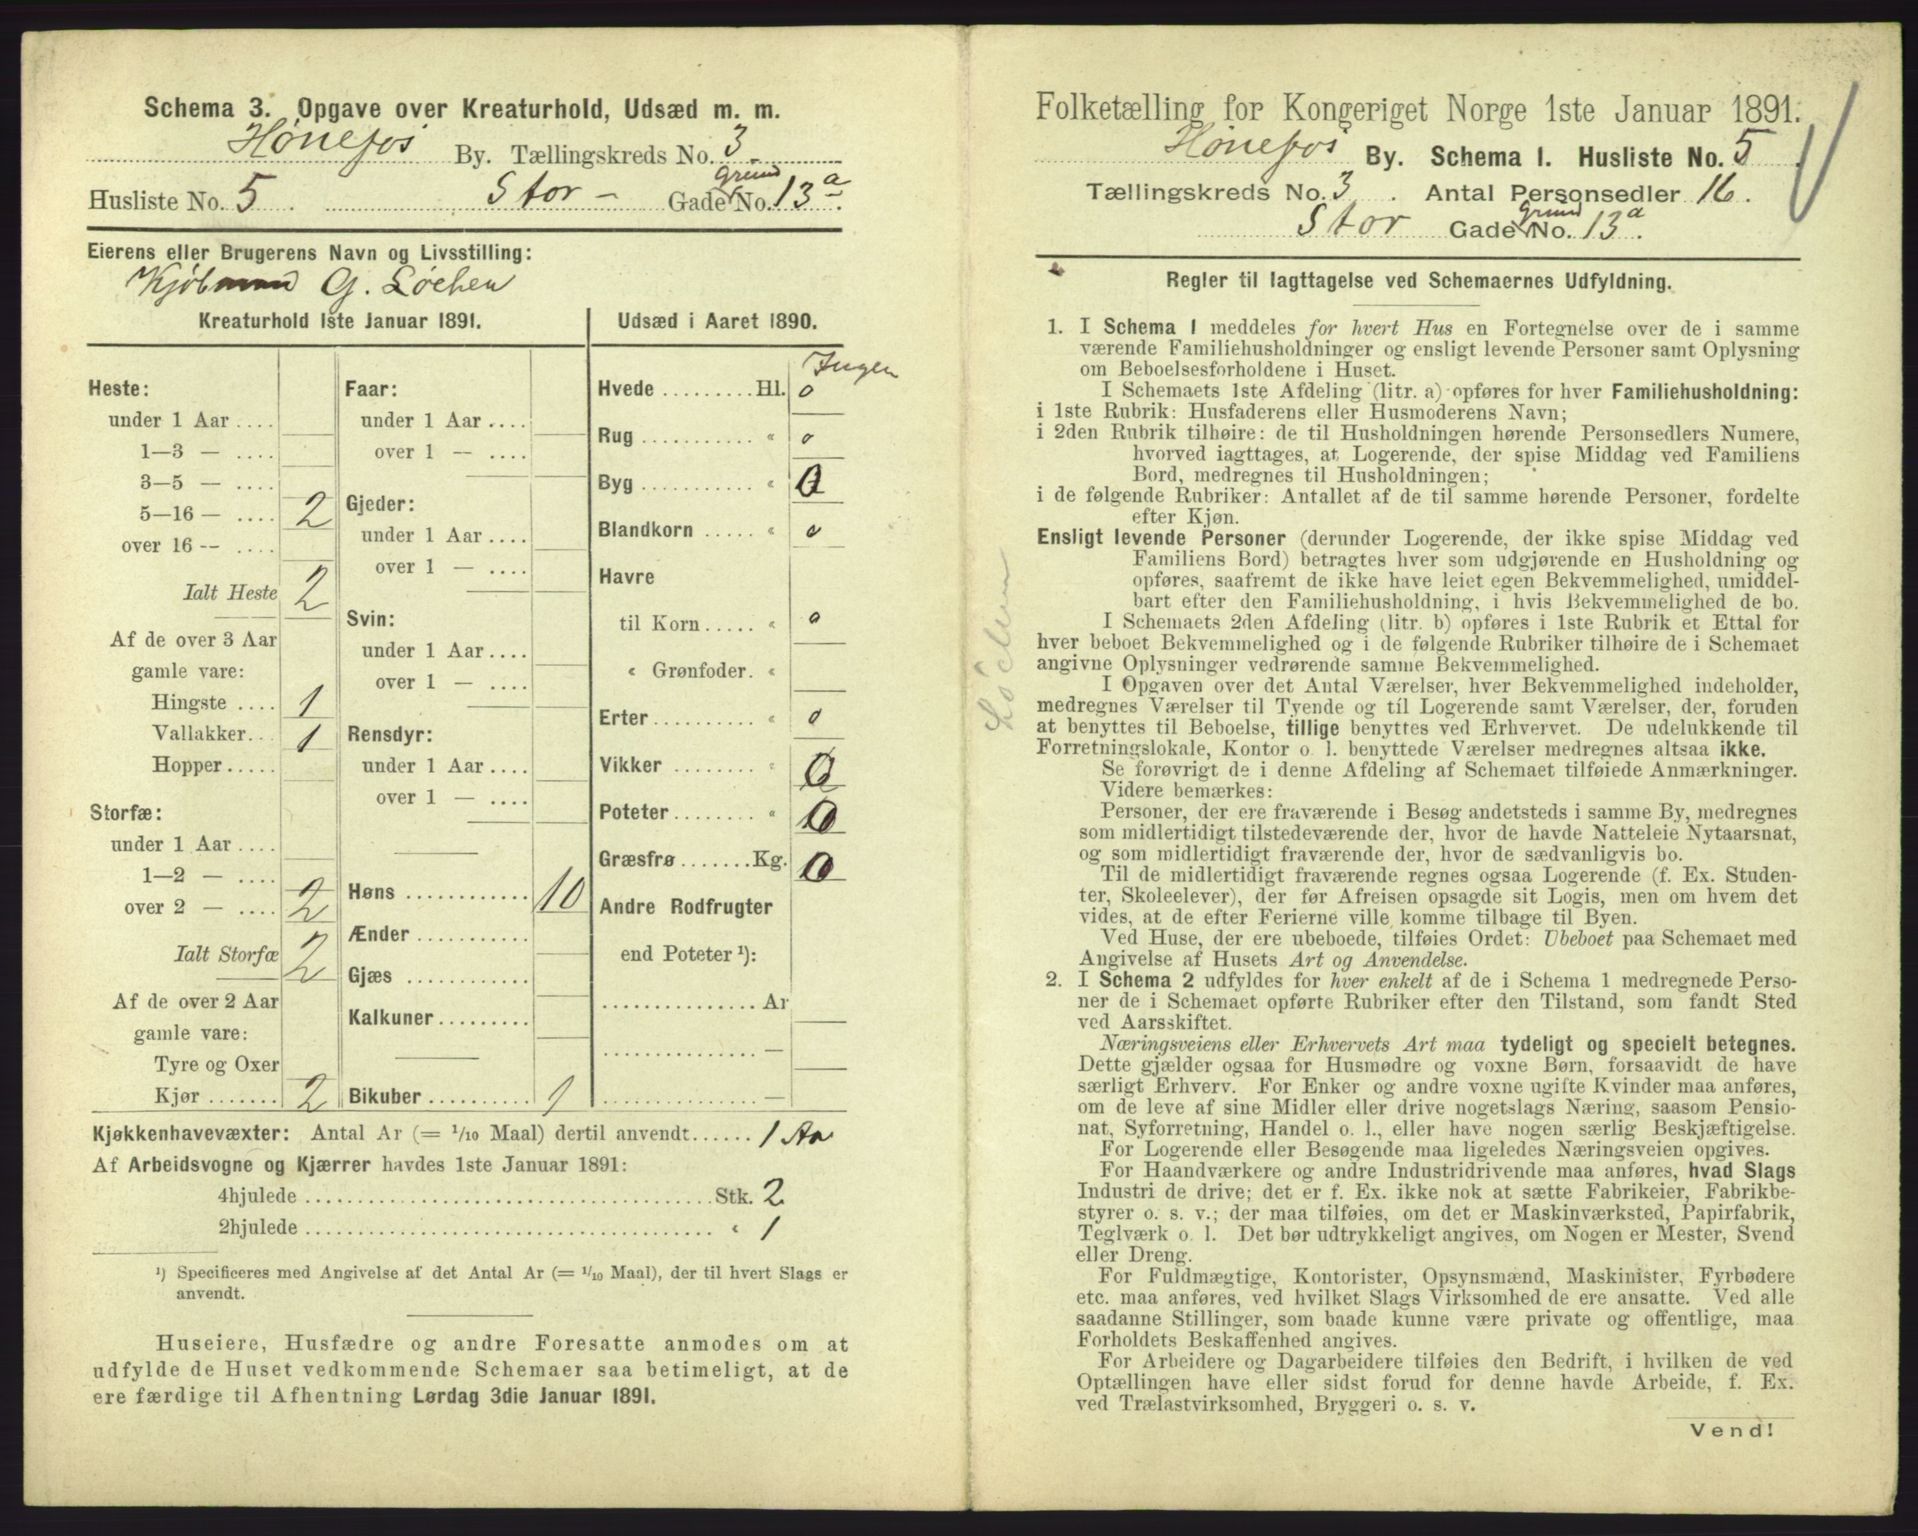 Schema 3. Opgave over Kreaturhold, Udsæd m. m.
Hønefos By. Tællingskreds No. 3
Husliste No. 5 Stor- Gade Grund No. 13 a.
Eierens eller Brugerens Navn og Livsstilling:
Kjøbmand G. Løchen
Kreaturhold 1ste Januar 1891.
Heste:
under 1 Aar ....
1—3 — ....
3—5 — ....
5—16 — .... 2
over 16 -- ....
Ialt Heste 2
Af de over 3 Aar
gamle vare:
Hingste .... 1
Vallakker... 1
Hopper.....
Storfæ:
under 1 Aar ....
1—2 — ....
over 2 — .... 2
Ialt Storfæ 2
Af de over 2 Aar
gamle vare:
Tyre og Oxer
Kjør ....... 2
Faar:
under 1 Aar ....
over 1 -- ....
Gjeder:
under 1 Aar ....
over 1 — ....
Svin:
under 1 Aar ....
over 1 — ....
Rensdyr:
under 1 Aar ....
over 1 — ....
Høns ............ 10
Ænder ...........
Gjæs ............
Kalkuner.........
Bikuber .......... 1
Udsæd i Aaret 1890.
Ingen
Hvede .........Hl. 0
Rug ........... " 0
Byg ........... " 0
Blandkorn ..... " 0
Havre
til Korn..... " 0
" Grønfoder. "
Erter.......... " 0
Vikker ........ " 0
Poteter........ " 0
Græsfrø .......Kg. 0
Andre Rodfrugter
end Poteter ¹):
................ Ar
................ —
................ —
Kjøkkenhavevæxter: Antal Ar (= 1/10 Maal) dertil anvendt...... 1 Ar
Af Arbeidsvogne og Kjærrer havdes 1ste Januar 1891:
4hjulede ........................................Stk. 2
2hjulede ........................................ " 1
¹) Specificeres med Angivelse af det Antal Ar (= 1/10 Maal), der til hvert Slags er
anvendt.
Huseiere, Husfædre og andre Foresatte anmodes om at
udfylde de Huset vedkommende Schemaer saa betimeligt, at de
ere færdige til Afhentning Lørdag 3die Januar 1891.
Løchen
Folketælling for Kongeriget Norge 1ste Januar 1891.
Hønefos By. Schema 1. Husliste No. 5.
Tællingskreds No. 3. Antal Personsedler 16.
Stor Gade Grund No. 13 a.
Regler til Iagttagelse ved Schemaernes Udfyldning.
1. I Schema 1 meddeles for hvert Hus en Fortegnelse over de i samme
værende Familiehusholdninger og ensligt levende Personer samt Oplysning
om Beboelsesforholdene i Huset.
I Schemaets 1ste Afdeling (litr. a) opføres for hver Familiehusholdning:
i 1ste Rubrik: Husfaderens eller Husmoderens Navn;
i 2den Rubrik tilhøire: de til Husholdningen hørende Personsedlers Numere,
hvorved iagttages, at Logerende, der spise Middag ved Familiens
Bord, medregnes til Husholdningen;
i de følgende Rubriker: Antallet af de til samme hørende Personer, fordelte
efter Kjøn.
Ensligt levende Personer (derunder Logerende, der ikke spise Middag ved
Familiens Bord) betragtes hver som udgjørende en Husholdning og
opføres, saafremt de ikke have leiet egen Bekvemmelighed, umiddel-
bart efter den Familiehusholdning, i hvis Bekvemmelighed de bo.
I Schemaets 2den Afdeling (litr. b) opføres i 1ste Rubrik et Ettal for
hver beboet Bekvemmelighed og i de følgende Rubriker tilhøire de i Schemaet
angivne Oplysninger vedrørende samme Bekvemmelighed.
I Opgaven over det Antal Værelser, hver Bekvemmelighed indeholder,
medregnes Værelser til Tyende og til Logerende samt Værelser, der, foruden
at benyttes til Beboelse, tillige benyttes ved Erhvervet. De udelukkende til
Forretningslokale, Kontor o. l. benyttede Værelser medregnes altsaa ikke.
Se forøvrigt de i denne Afdeling af Schemaet tilføiede Anmærkninger.
Videre bemærkes:
Personer, der ere fraværende i Besøg andetsteds i samme By, medregnes
som midlertidigt tilstedeværende der, hvor de havde Natteleie Nytaarsnat,
og som midlertidigt fraværende der, hvor de sædvanligvis bo.
Til de midlertidigt fraværende regnes ogsaa Logerende (f. Ex. Studen-
ter, Skoleelever), der før Afreisen opsagde sit Logis, men om hvem det
vides, at de efter Ferierne ville komme tilbage til Byen.
Ved Huse, der ere ubeboede, tilføies Ordet: Ubeboet paa Schemaet med
Angivelse af Husets Art og Anvendelse.
2. I Schema 2 udfyldes for hver enkelt af de i Schema 1 medregnede Perso-
ner de i Schemaet opførte Rubriker efter den Tilstand, som fandt Sted
ved Aarsskiftet.
Næringsveiens eller Erhvervets Art maa tydeligt og specielt betegnes.
Dette gjælder ogsaa for Husmødre og voxne Børn, forsaavidt de have
særligt Erhverv. For Enker og andre voxne ugifte Kvinder maa anføres,
om de leve af sine Midler eller drive nogetslags Næring, saasom Pensio-
nat, Syforretning, Handel o. l., eller have nogen særlig Beskjæftigelse.
For Logerende eller Besøgende maa ligeledes Næringsveien opgives.
For Haandværkere og andre Industridrivende maa anføres, hvad Slags
Industri de drive; det er f. Ex. ikke nok at sætte Fabrikeier, Fabrikbe-
styrer o. s. v.; der maa tilføies, om det er Maskinværksted, Papirfabrik,
Teglværk o. l. Det bør udtrykkeligt angives, om Nogen er Mester, Svend
eller Dreng.
For Fuldmægtige, Kontorister, Opsynsmænd, Maskinister, Fyrbødere
etc. maa anføres, ved hvilket Slags Virksomhed de ere ansatte. Ved alle
saadanne Stillinger, som baade kunne være private og offentlige, maa
Forholdets Beskaffenhed angives.
For Arbeidere og Dagarbeidere tilføies den Bedrift, i hvilken de ved
Optællingen have eller sidst forud for denne havde Arbeide, f. Ex.
ved Trælastvirksomhed, Bryggeri o. s. v.
Vend!